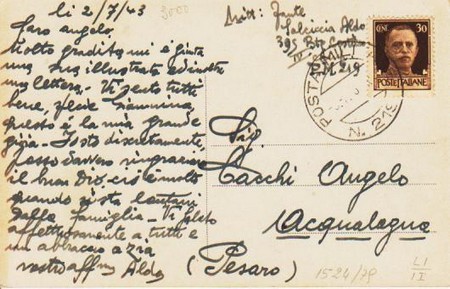 li 2/7/43
Caro Angelo,
Molto gradita mi è giunta
una tua illustrata ed inoltre
una lettera. Vi sento tutti
bene, felice
questo è la mia grande
gioia. Io sto discretamente,
posso davvero ringraziare
il buon Dio, ciò è molto
quando si sta lontani
dalla famiglia. Ti saluto
affettuosamente a tutti e
un abbraccio a zia
vostro aff.mo Aldo
Mitt: Fante
Aldo
P.M. 219
3000
CENT. 30
POSTE ITALIANE
POSTA MIL
N. 219
Sig.
Cacchi Angelo
Acqualagna
(Pesaro)
1524/79
LI
II